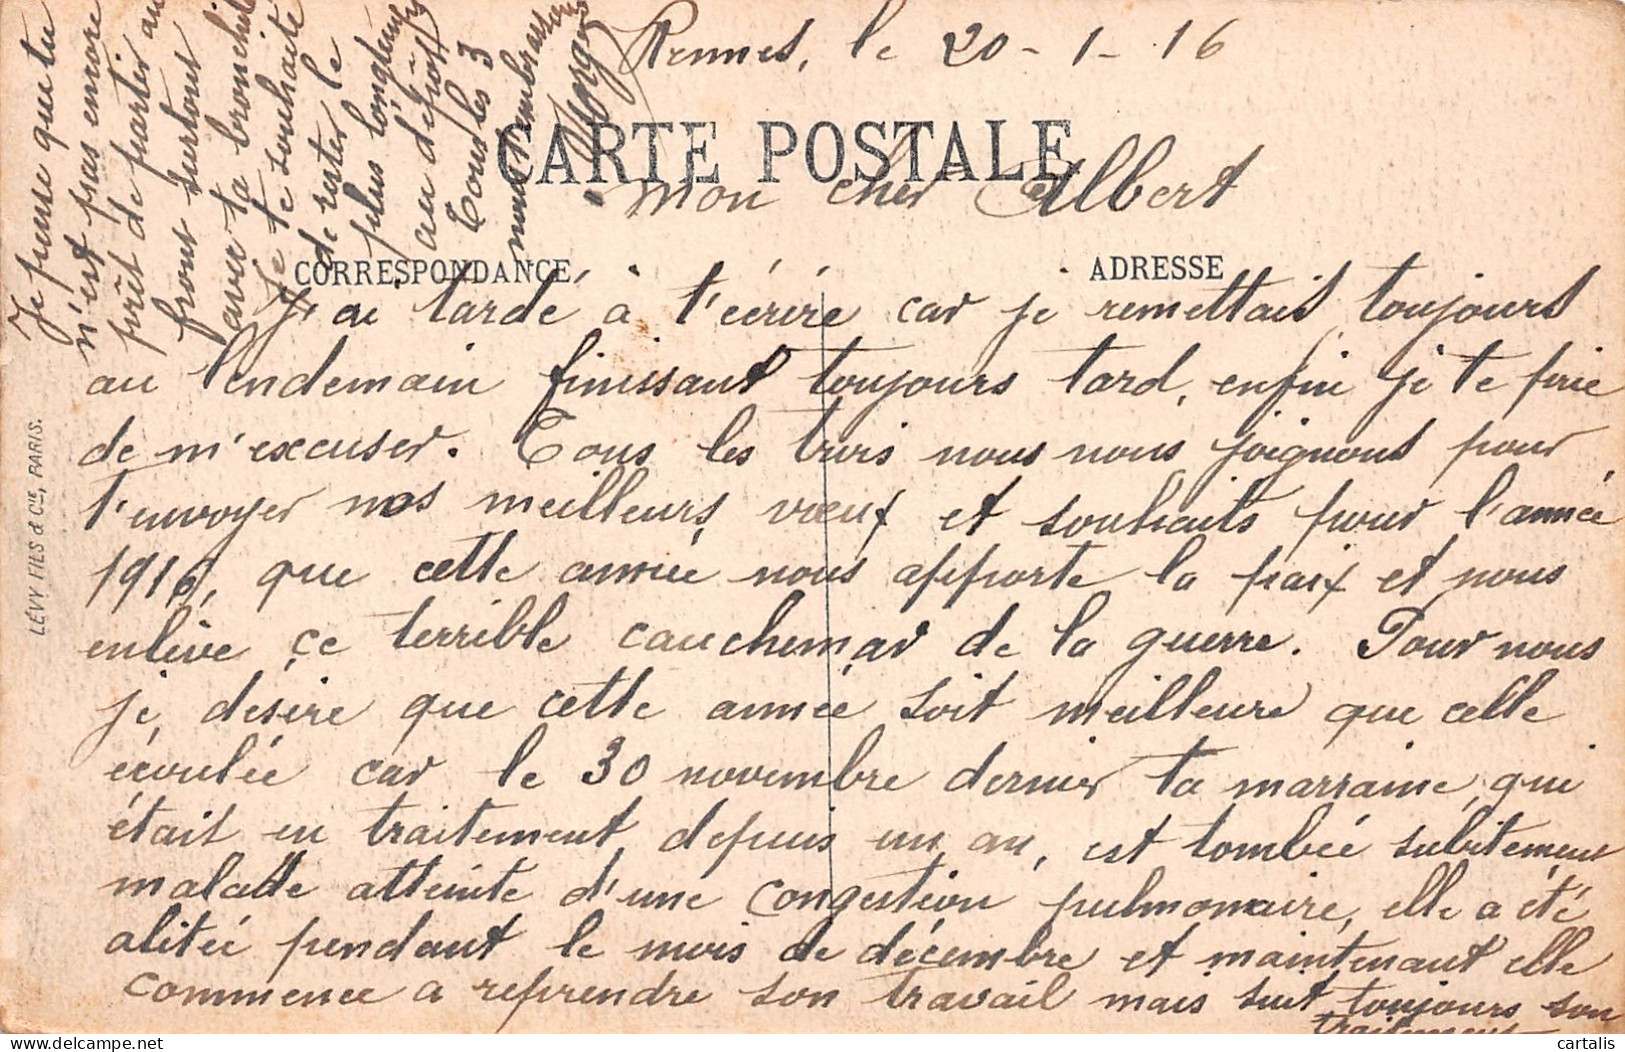 Rennes, le 20-1-16
CARTE POSTALE
Mon cher Albert
CORRESPONDANCE
ADRESSE
J'ai tardé à t'écrire car je remettais toujours
au lendemain finissant toujours tard, enfin je te prie
de m'excuser. Tous les trois nous nous joignons pour
t'envoyer nos meilleurs vœux et souhaits pour l'année
1916, que cette année nous apporte la paix et nous
enlève ce terrible cauchemar de la guerre. Pour nous
je désire que cette année soit meilleure que celle
écoulée car le 30 novembre dernier ta marraine, qui
était en traitement depuis un an, est tombée subitement
malade atteinte d'une congestion pulmonaire, elle a été
alitée pendant le mois de décembre et maintenant elle
commence a reprendre son travail mais suit toujours son
traitement
Je pense que tu
n'est pas encore
prêt de partir au
front surtout
avec ta bronchite
Je te souhaite
de rester le
plus longtemps
au dépôt
Tous les 3
nous t'embrassons
LÉVY FILS & Cie, PARIS.
cartalis
delcampe.net